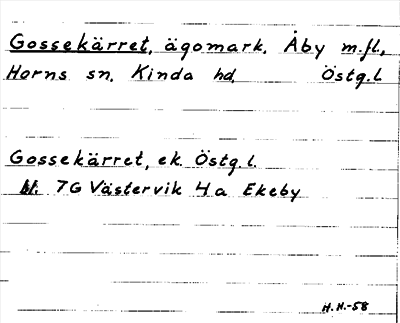 Gossekärret, ägomark. Åby m.fl.,
Horns sn. Kinda hd. Östg.l.
Gossekärret, ek. Östg.l.
bl. 7G Västervik 4a Ekeby
H.H.-58